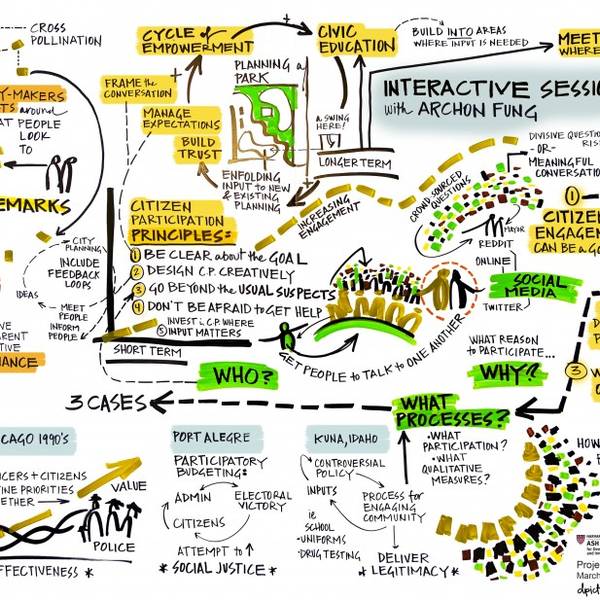 CROSS
POLLINATION
Y-MAKERS
TS around
AT PEOPLE
LOOK
TO
EMARKS
CITY
PLANNING
INCLUDE
FEEDBACK
LOOPS
IDEAS
MEET
PEOPLE
INFORM
PEOPLE
VE
RENT
TIVE
NANCE
CYCLE of
EMPOWERMENT
FRAME the
CONVERSATION
+
MANAGE
EXPECTATIONS
BUILD
TRUST
PLANNING a
PARK
ENFOLDING
INPUT to NEW
& EXISTING
PLANNING
+
CIVIC
EDUCATION
A SWING
HERE!
LONGER TERM
BUILD INTO AREAS
WHERE INPUT IS NEEDED
MEET
WHERE
INTERACTIVE SESSIO
with ARCHON FUNG
CITIZEN
PARTICIPATION
PRINCIPLES:
1 BE CLEAR about the GOAL
2 DESIGN C.P. CREATIVELY
3 GO BEYOND the USUAL SUSPECTS
4 DON'T BE AFRAID to GET HELP
5 INVEST i.C.P. WHERE
INPUT MATTERS
SHORT TERM
INCREASING
ENGAGEMENT
GET PEOPLE to TALK to ONE ANOTHER
CROWD SOURCED
QUESTIONS
DIVISIVE QUESTIO
-OR-
RIS
MEANINGFUL
CONVERSATIO
MAYOR
REDDIT
ONLINE
SOCIAL
MEDIA
TWITTER
1
CITIZE
ENGAGEM
CAN BE a GO
WHAT REASON
to PARTICIPATE...
WHY?
3
WHO?
3 CASES
WHAT
PROCESSES?
• WHAT
PARTICIPATION?
• WHAT
QUALITATIVE
MEASURES?
CAGO 1990'S
ICERS + CITIZENS
INE PRIORITIES
ETHER
VALUE
POLICE
FFECTIVENESS *
PORT ALEGRE
PARTICIPATORY
BUDGETING:
ADMIN
ELECTORAL
VICTORY
CITIZENS
ATTEMPT to ↑
* SOCIAL JUSTICE *
KUNA, IDAHO
CONTROVERSIAL
POLICY
INPUTS
ie
SCHOOL
-UNIFORMS
-DRUG TESTING
PROCESS for
ENGAGING
COMMUNITY
DELIVER
* LEGITIMACY *
HOW
ASH
Proje
March
dpict